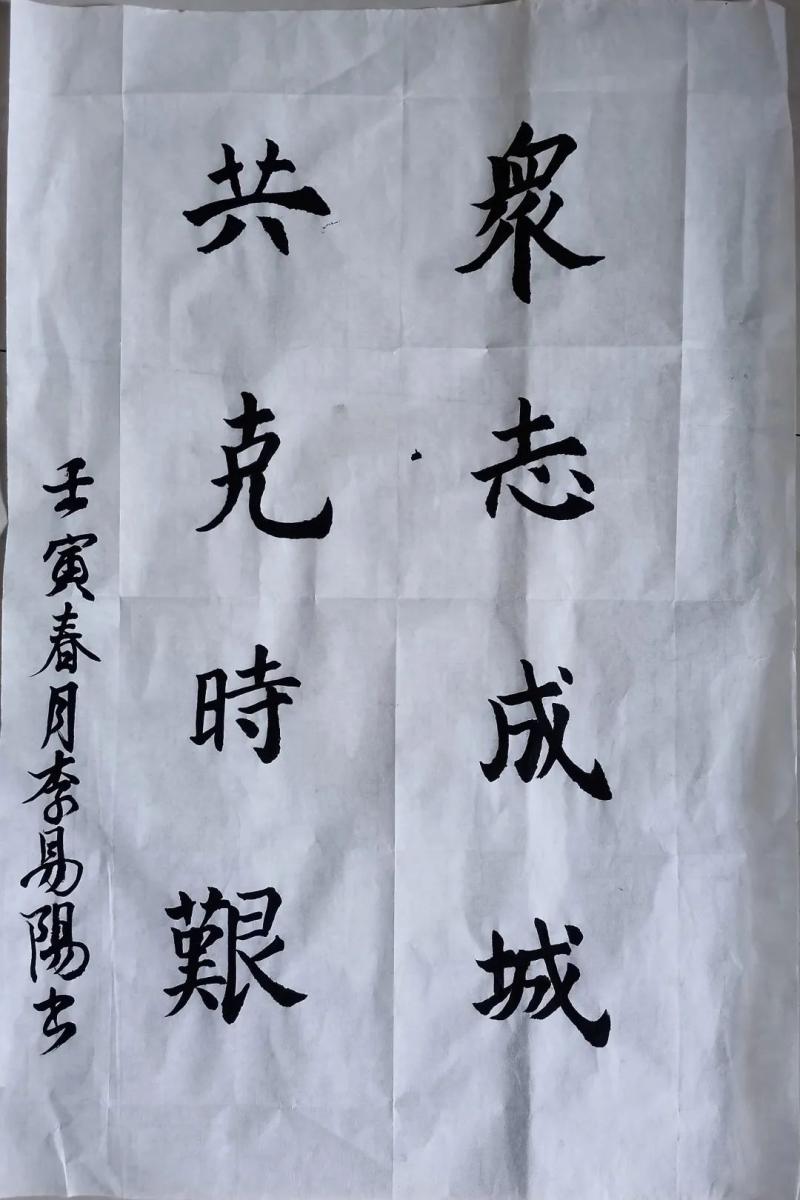 衆志成城
共克時艱
壬寅春月李易陽书